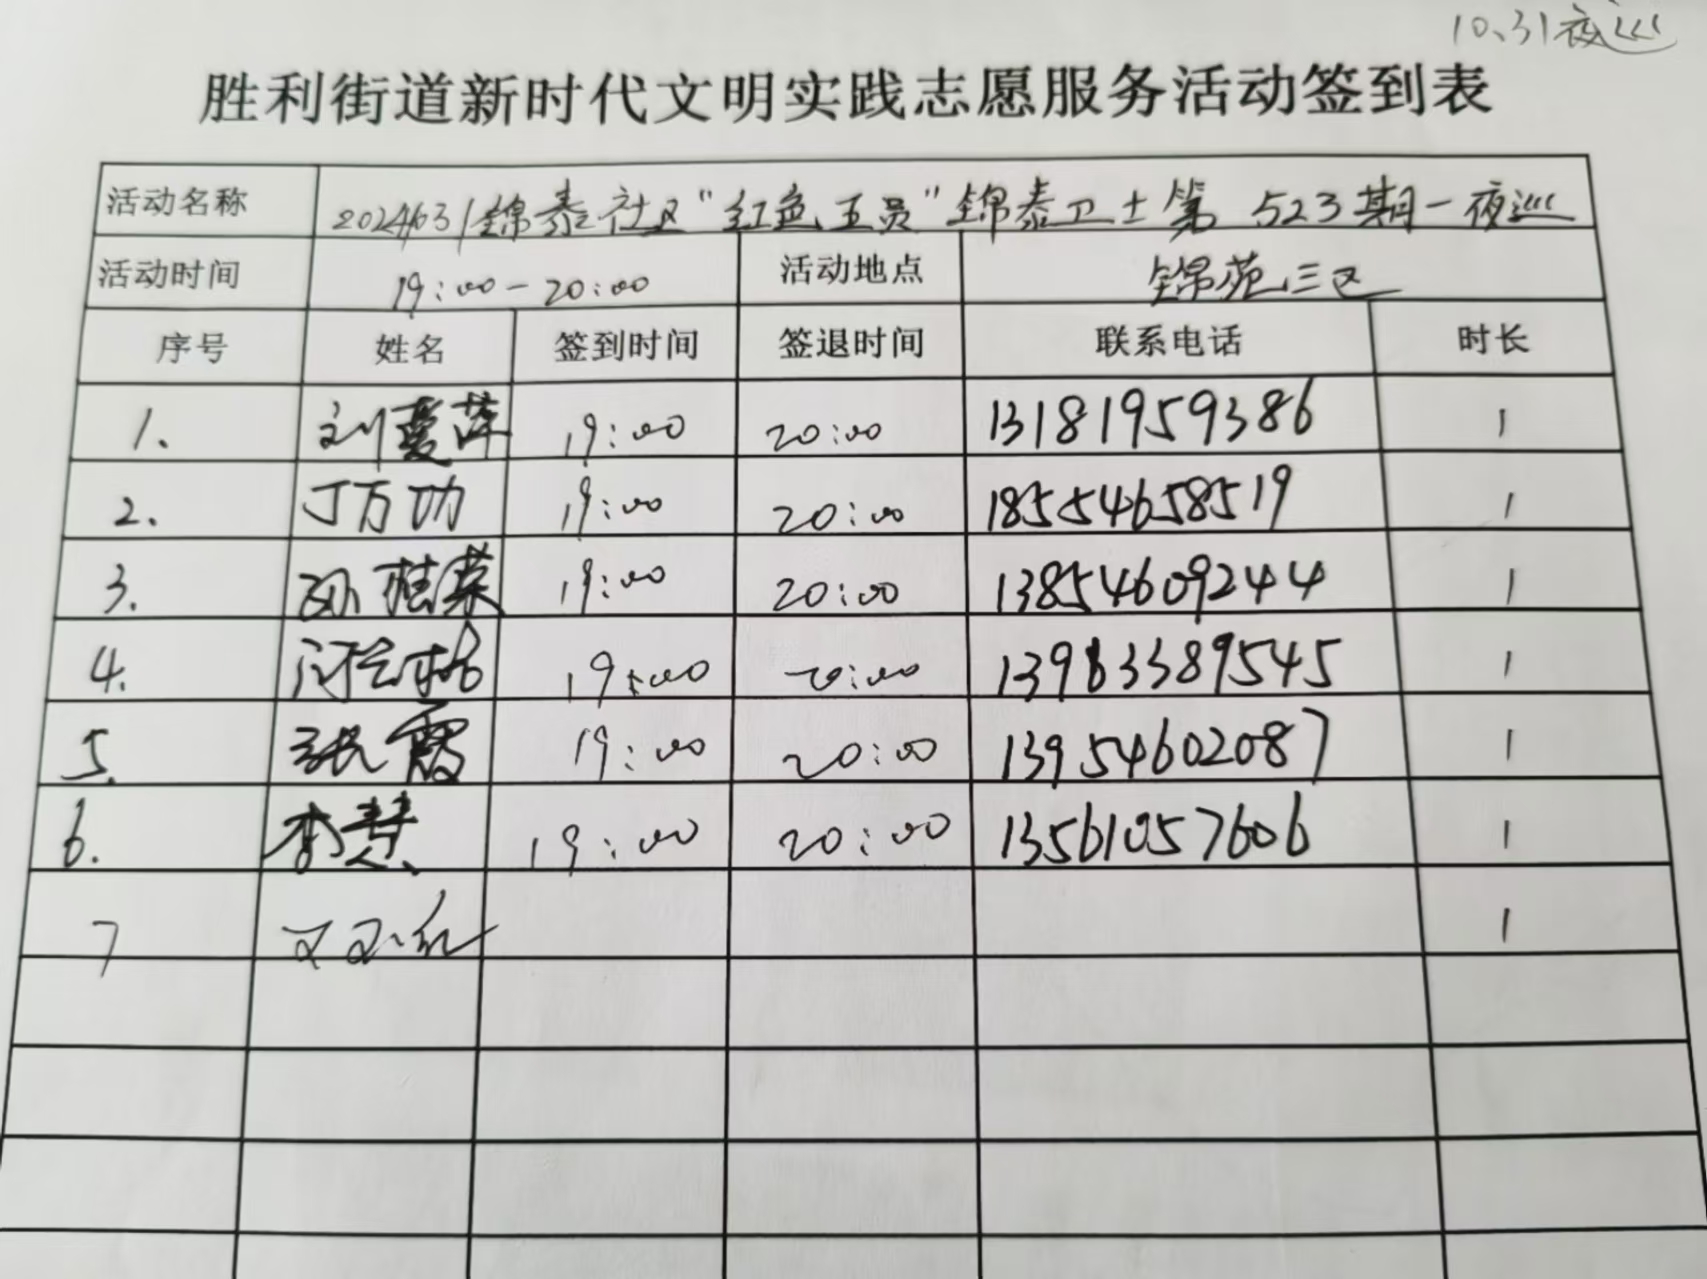 10.31夜巡
胜利街道新时代文明实践志愿服务活动签到表
活动名称 20241031锦泰社区"红色五员"锦泰卫士第523期-夜巡
活动时间 19:00-20:00 活动地点 锦苑三区
序号 姓名 签到时间 签退时间 联系电话 时长
1. 刘蔓萍 19:00 20:00 13181959386 1
2. 丁万功 19:00 20:00 18554658519 1
3. 孙桂荣 19:00 20:00 13854609244 1
4. 19:00 20:00 1
5. 张霞 19:00 20:00 13954602087 1
6. 李慧 19:00 20:00 13561057606 1
7 1